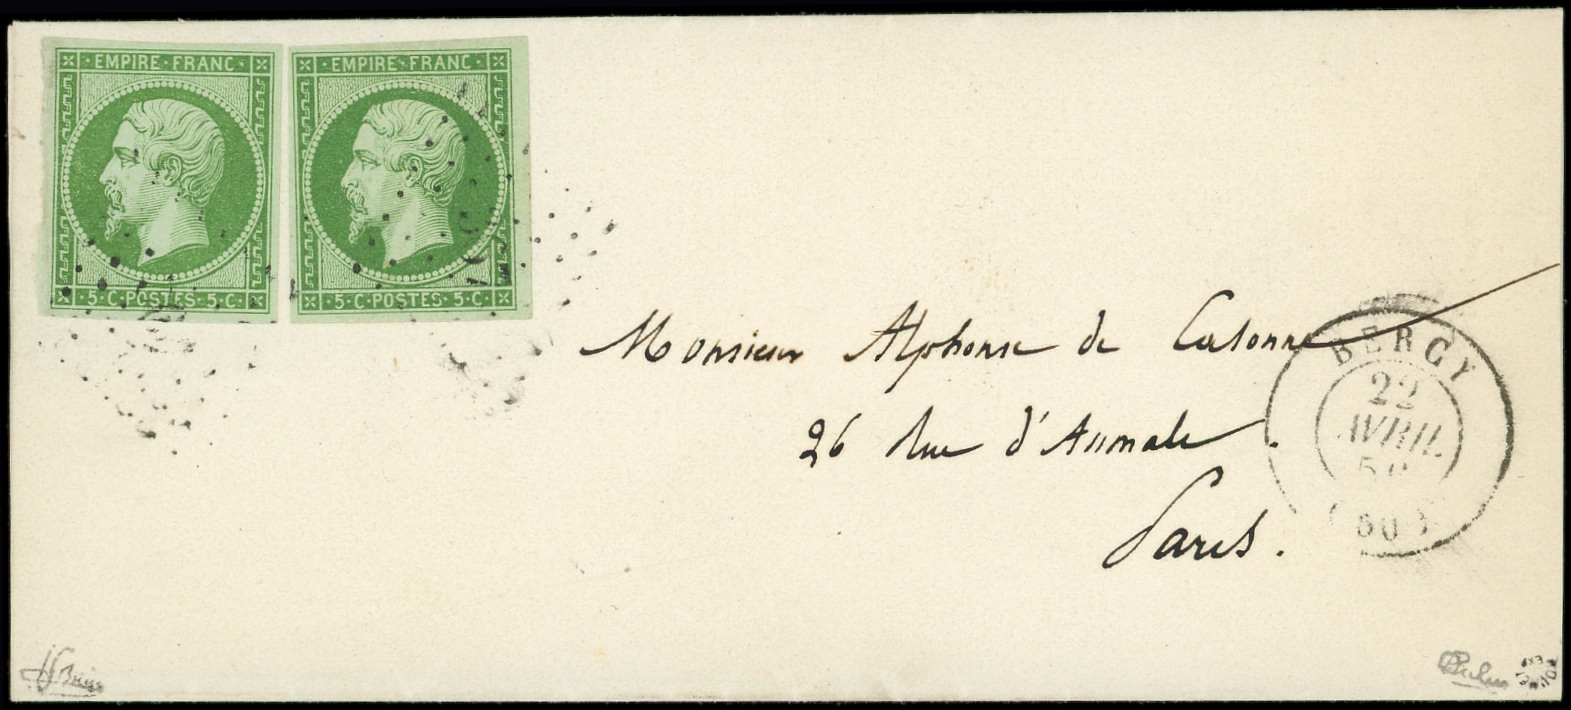 EMPIRE·FRANC·
5·C·POSTES·5·C·
EMPIRE·FRANC·
5·C·POSTES·5·C·
Monsieur Alphonse de Calonne
26 Rue d'Aumale.
Paris.
BERCY
22
AVRIL
(60)